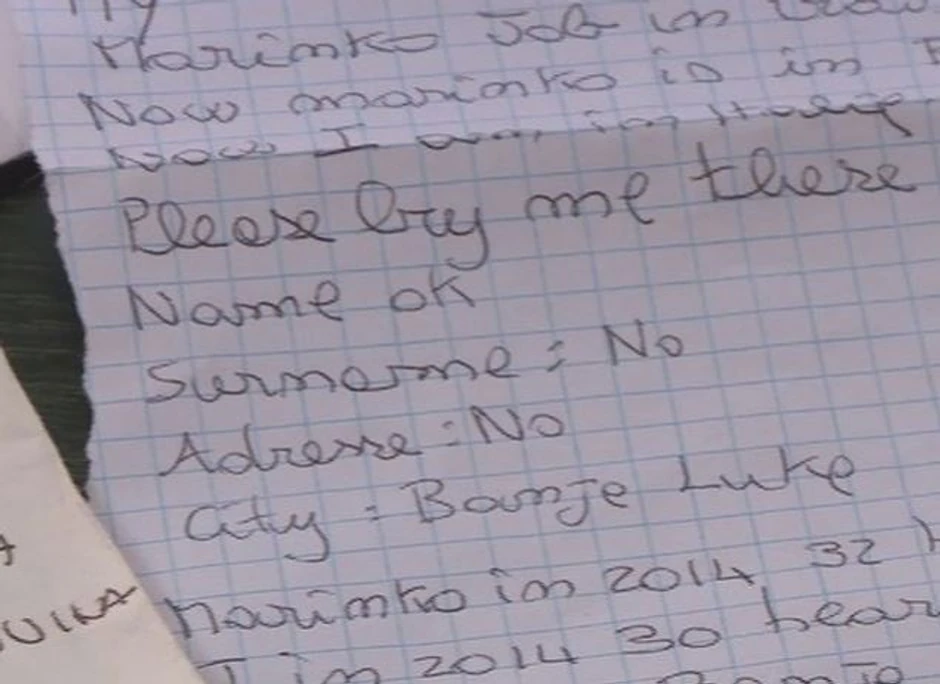 Marinko Job in
Now marinko is in
Now I am in
Pleese try me there
Name ok
Surname: No
Adresse: No
City: Banje Luke
Marinko in 2014 32
I in 2014 30 hear